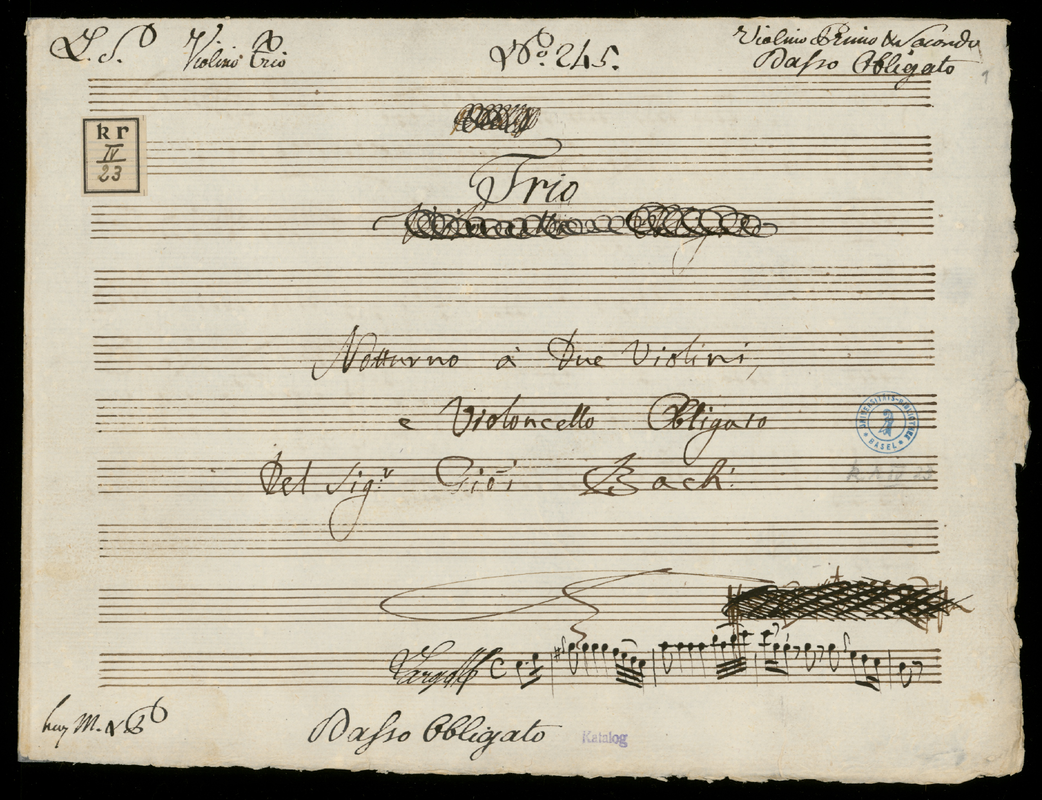 L. S. Violino Trio
No. 245.
Violino Primo & Secondo
Basso Obligato
1
kr
IV
23
Trio
Notturno à Due Violini,
e Violoncello Obligato
Del Sigr. Gioi Bach:
UNIVERSITÄTS-BIBLIOTHEK BASEL
kr IV 23
Largo
Basso Obligato
Katalog